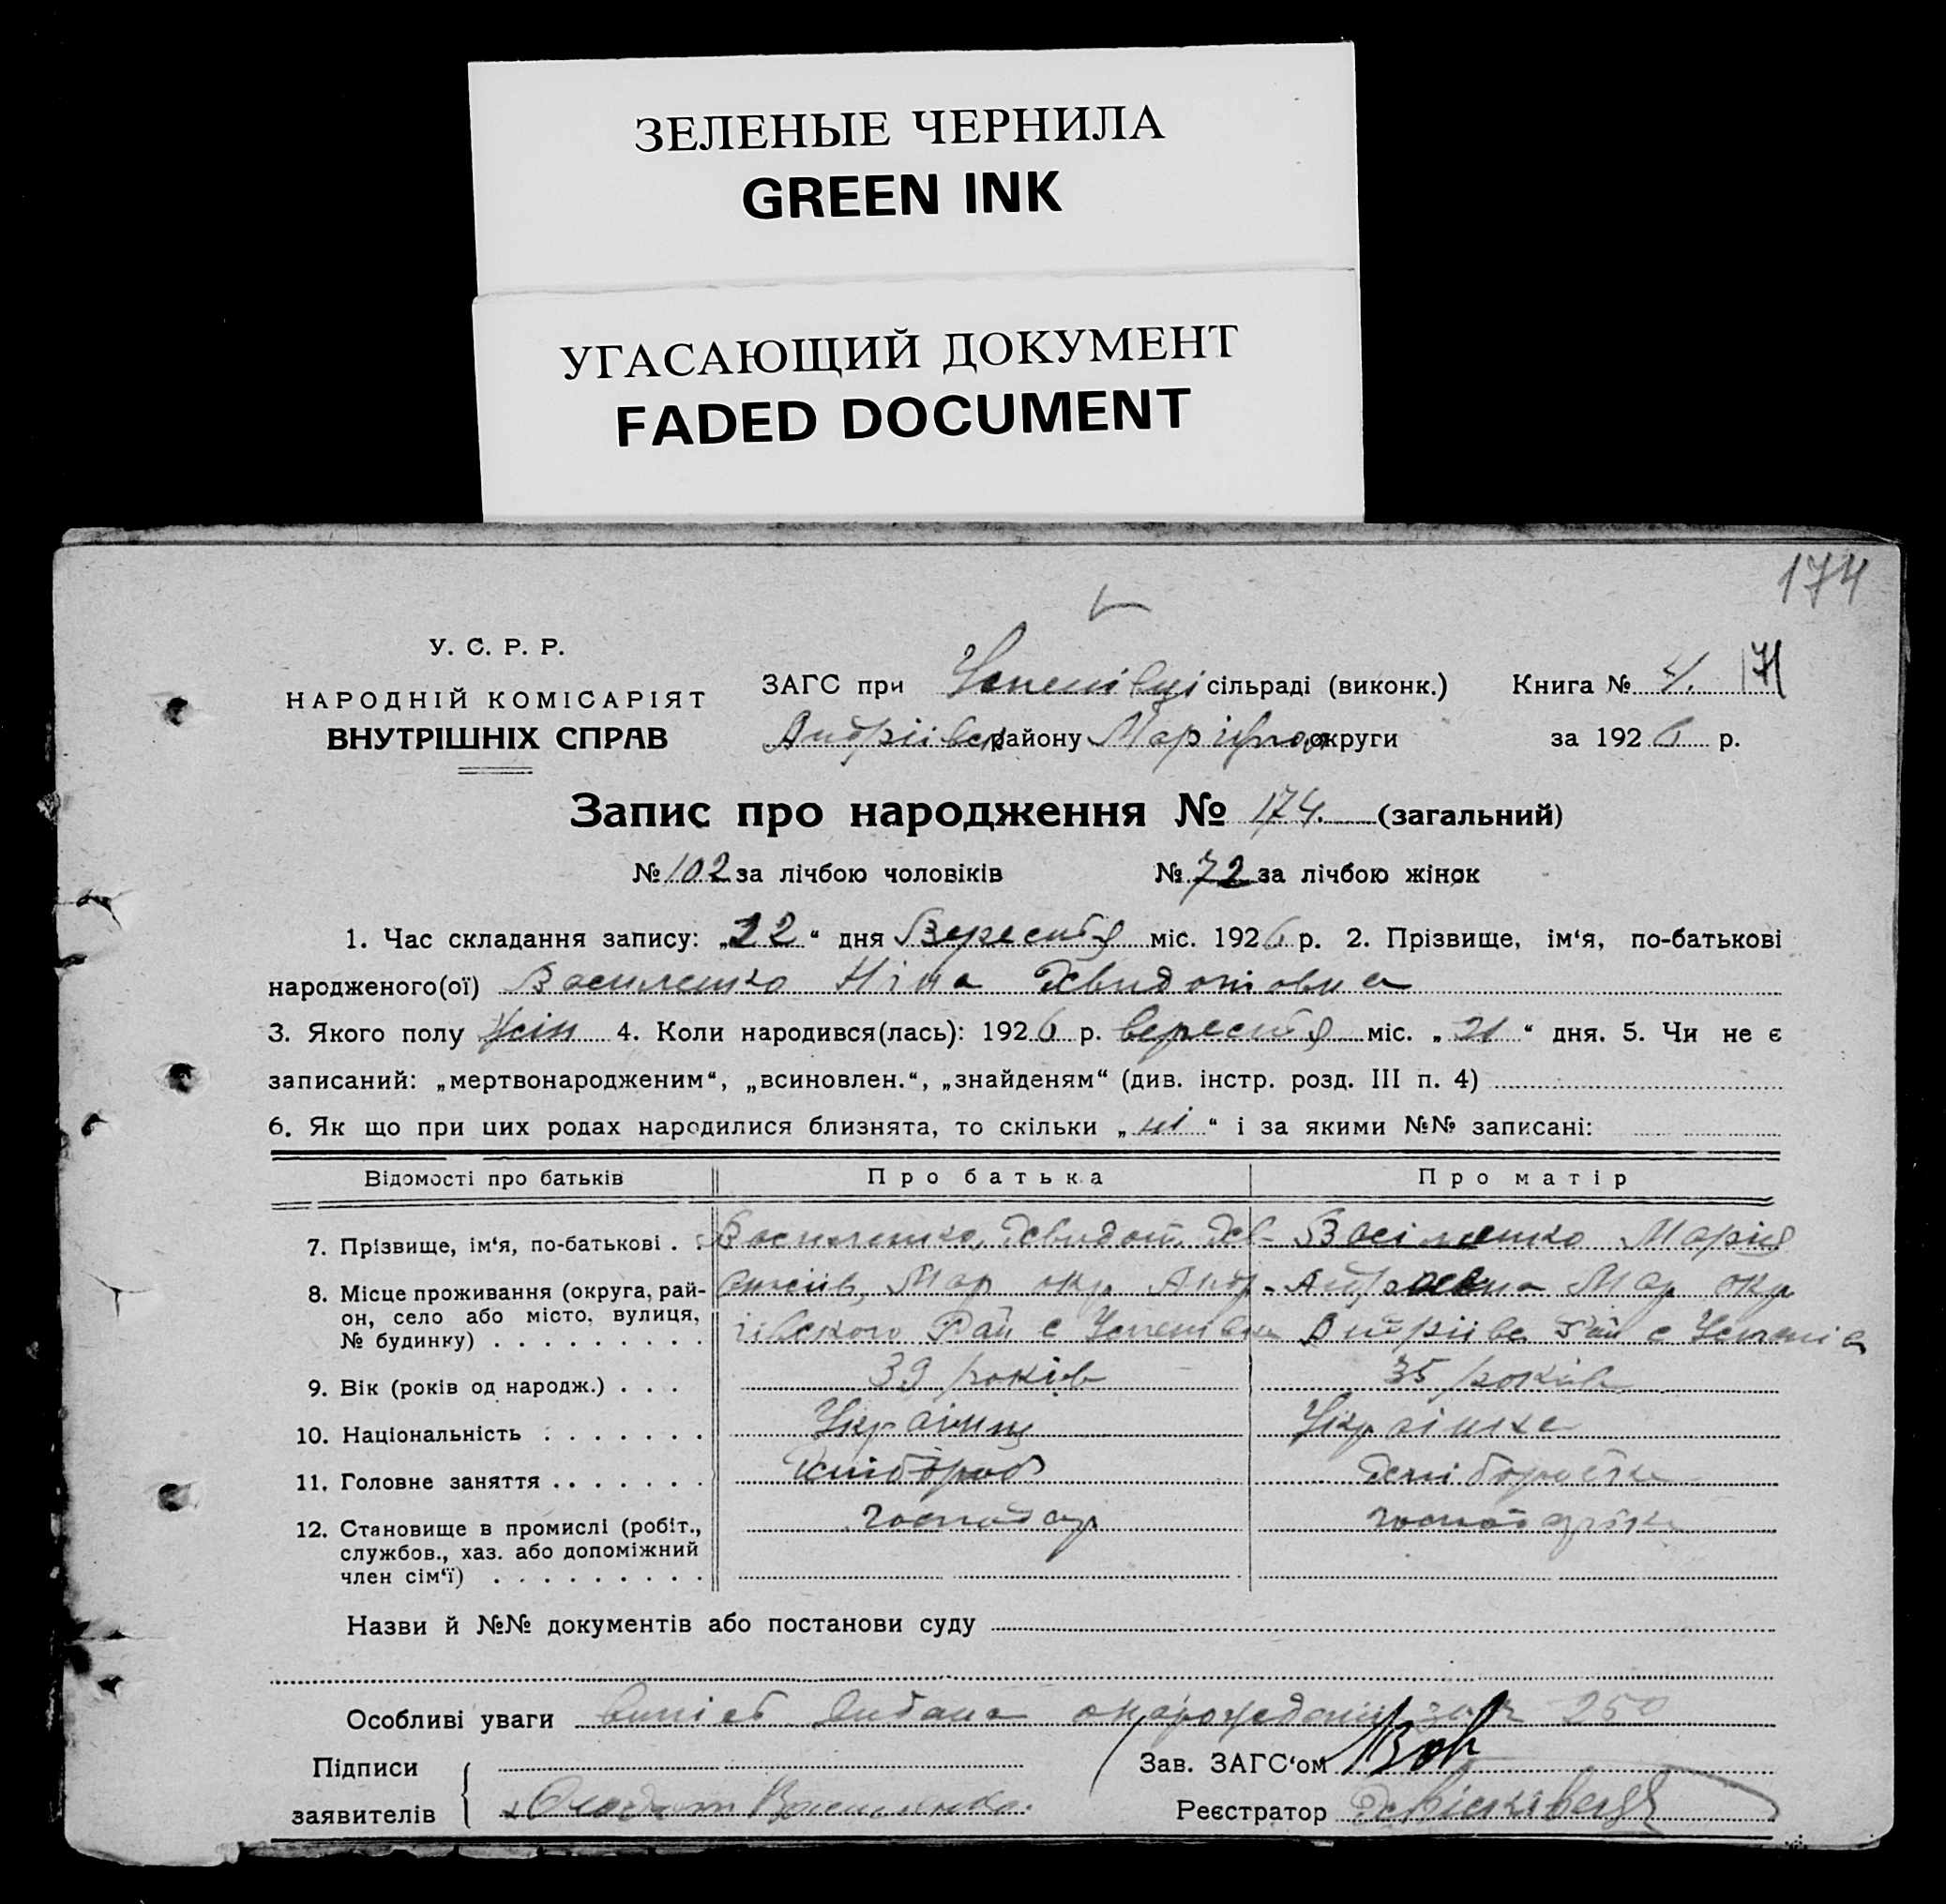 ЗЕЛЕНЫЕ ЧЕРНИЛА
GREEN INK
УГАСАЮЩИЙ ДОКУМЕНТ
FADED DOCUMENT
174
У. С. Р. Р.
НАРОДНІЙ КОМІСАРІЯТ
ВНУТРІШНІХ СПРАВ
ЗАГС при Успенівці сільраді (виконк.) Книга № 4. 171
Андріївск району Маріупол округи за 1926 р.
Запис про народження № 174. (загальний)
№ 102 за лічбою чоловіків № 72 за лічбою жінок
1. Час складання запису: „22“ дня Вересня міс. 1926 р. 2. Прізвище, ім‘я, по-батькові
народженого(ої) Василенко Ніна
3. Якого полу жін 4. Коли народився(лась): 1926 р. вересня міс. „21“ дня. 5. Чи не є
записаний: „мертвонародженим“, „всиновлен.“, „знайденям“ (див. інстр. розд. III п. 4)
6. Як що при цих родах народилися близнята, то скільки „ні“ і за якими №№ записані:
Відомості про батьків Про батька Про матір
7. Прізвище, ім‘я, по-батькові . . Василенко, Василенко Марія
8. Місце проживання (округа, рай- Мар окр Андр- Мар окр
он, село або місто, вулиця, іівского Рай с Успенівка Андріівс Рай с Успенів
№ будинку) . . . . . . . . .
9. Вік (років од народж.) . . . 39 років 35 років
10. Національність . . . . . . . Українц Українка
11. Головне заняття . . . . . . . хлібороб хліборобка
12. Становище в промислі (робіт., господар господарка
службов., хаз. або допоміжний
член сім‘ї) . . . . . . . . .
Назви й №№ документів або постанови суду
Особливі уваги 250
Підписи
заявителів Василенко.
Зав. ЗАГС‘ом
Реєстратор